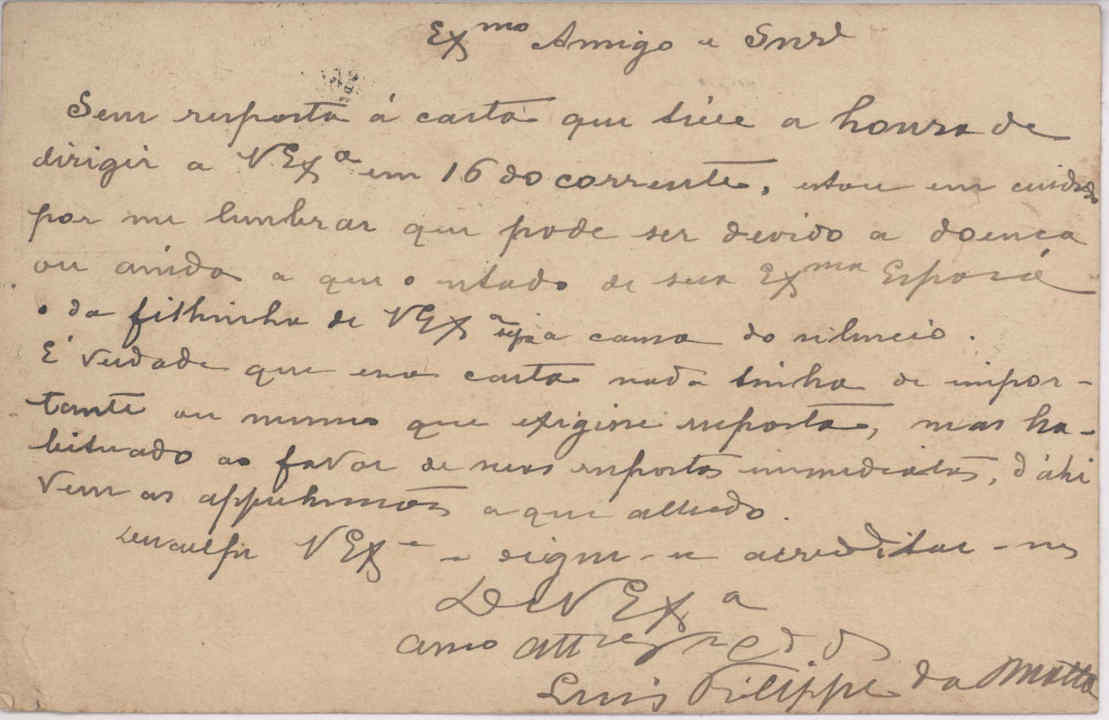 Exmo Amigo e Snr
Sem resposta á carta que tive a honra de
dirigir a V Exa em 16 do corrente, estou em cuidado
por me lembrar que pode ser devido a doença
ou ainda a que o estado de sua Exma Esposa
o da filhinha de V Exa seja a causa do silencio.
É verdade que essa carta nada tinha de impor-
tante ou mesmo que exigisse resposta, mas ha-
bituado ao favor de suas respostas immediatas, d'ahi
vem as apprehensões a que alludo.
Desculpe V Exa e digne-se acreditar-me
De V Exa
amo atto
Luis Filippe da Matta